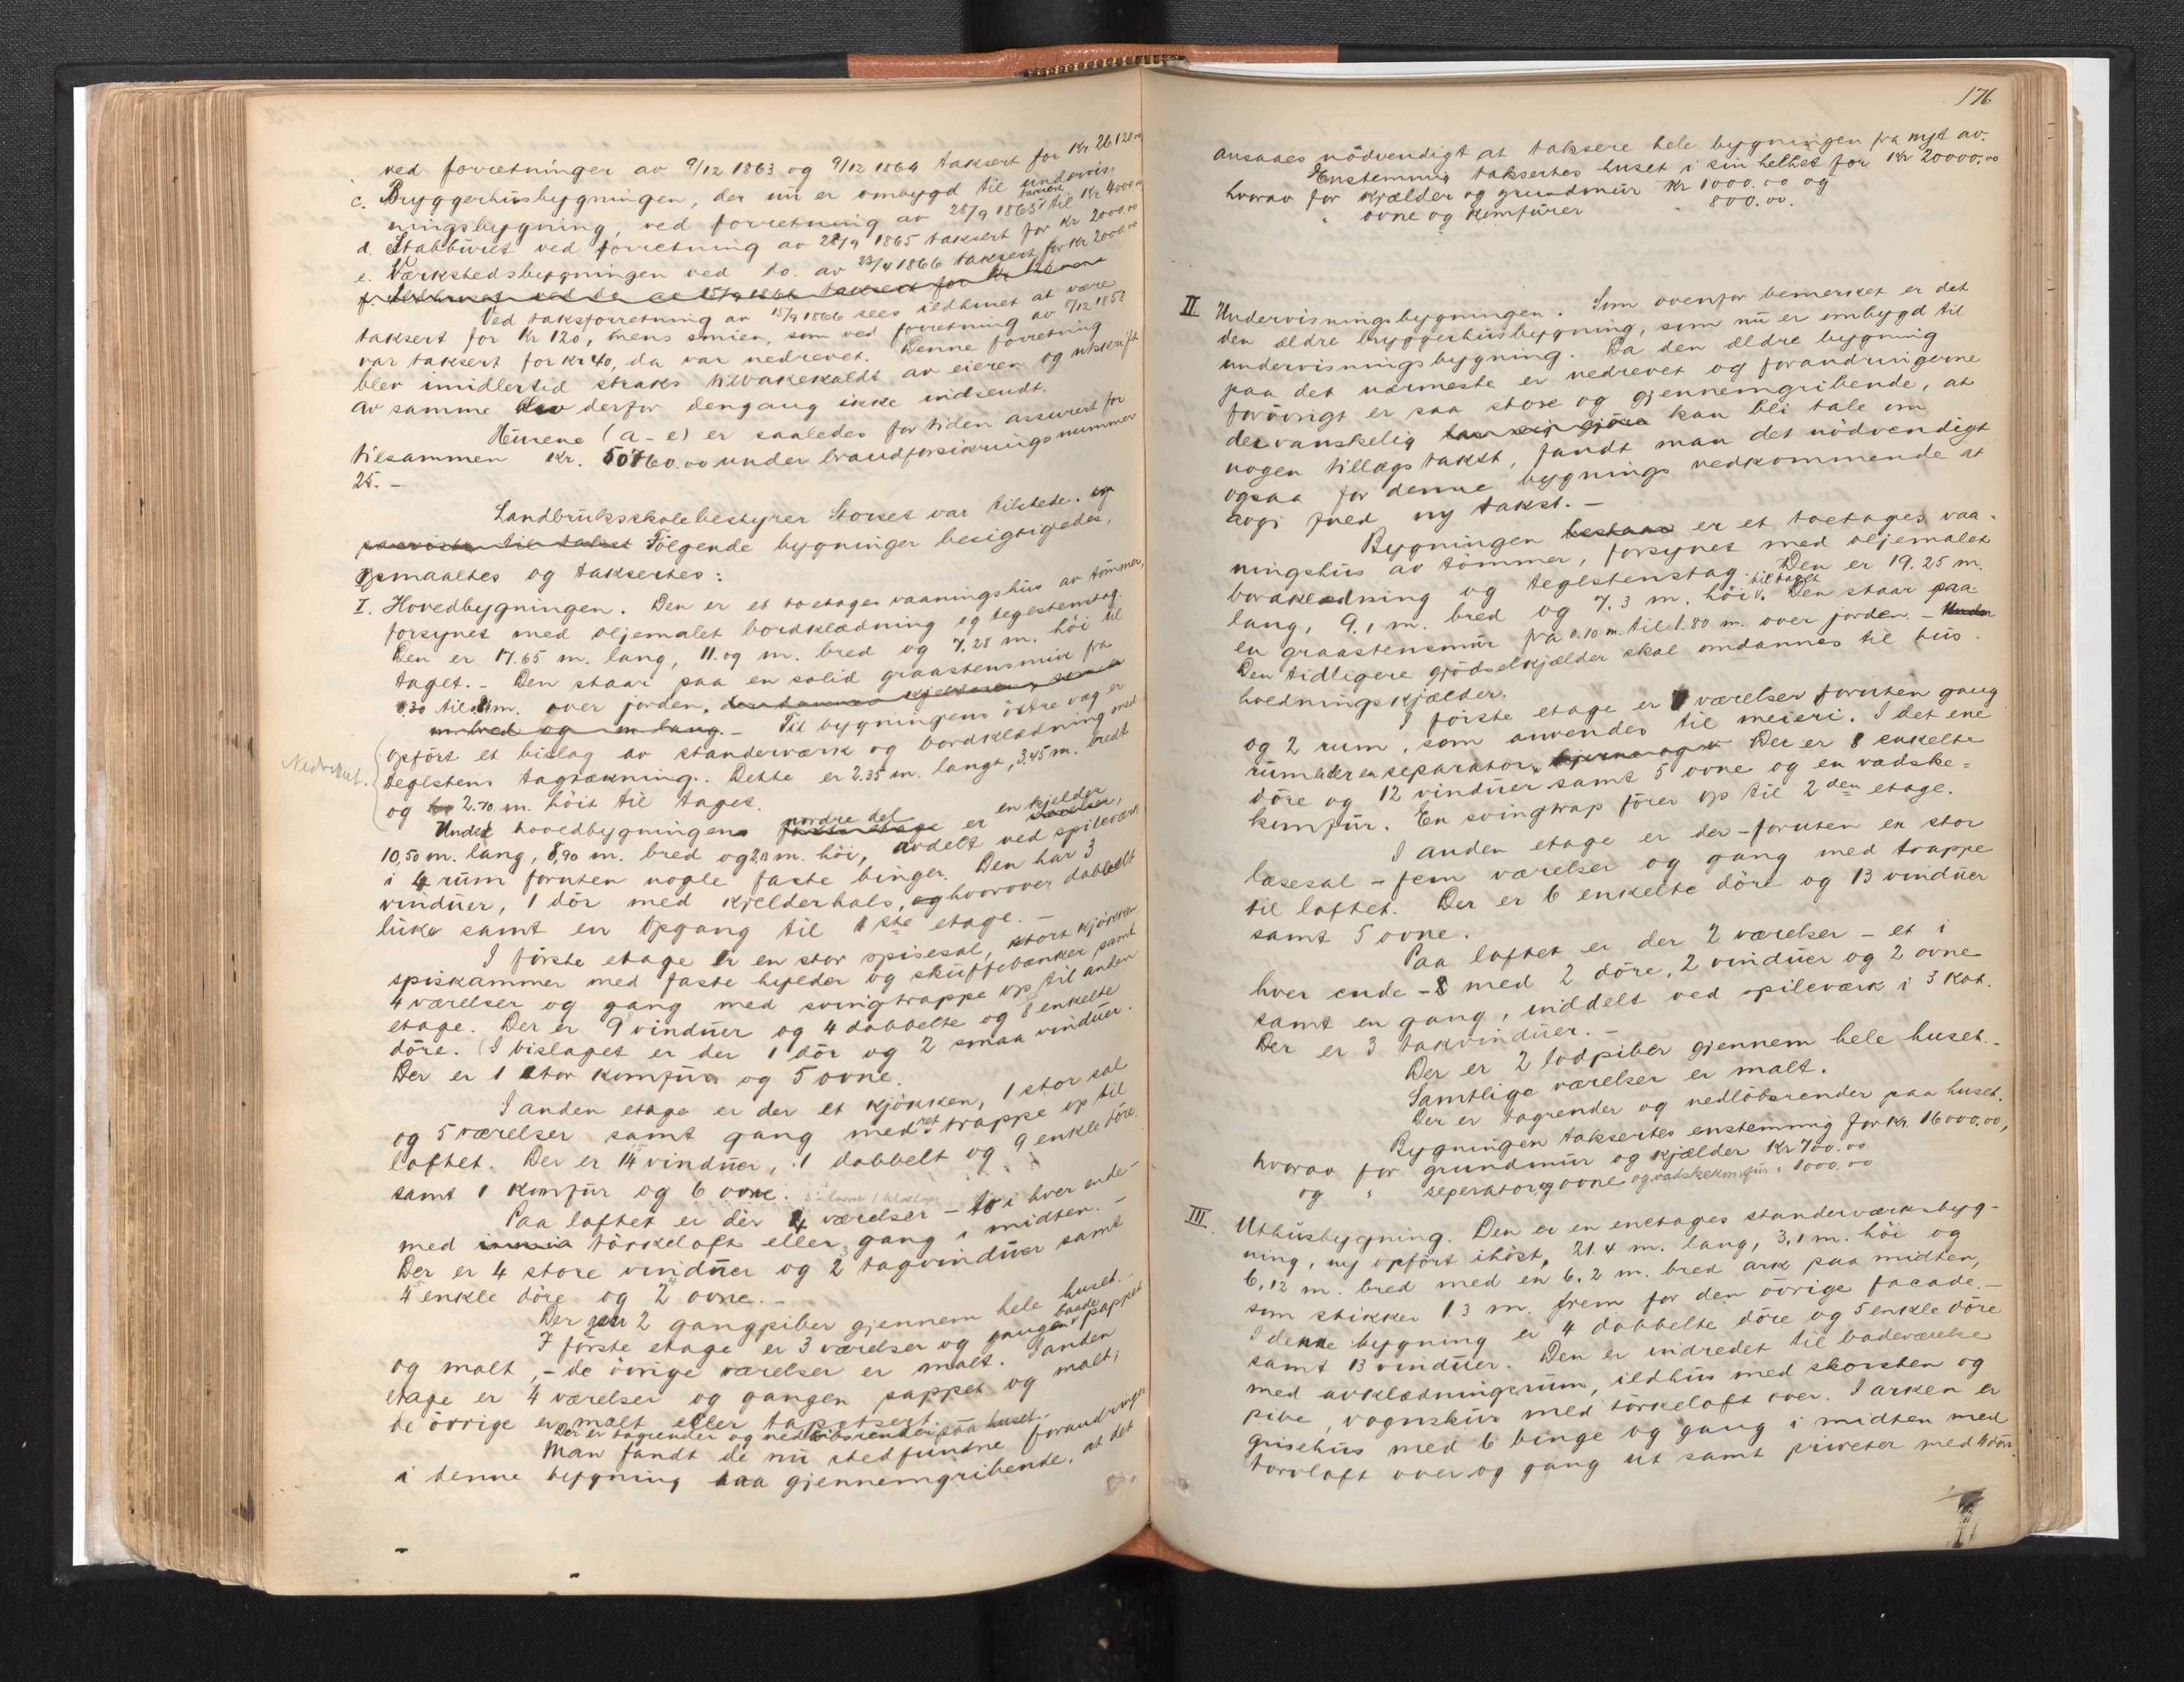 ved forretninger av 9/12 1863 og 9/12 1864 taksert for Kr 26120.00
c. Bryggerhusbygningen, der nu er ombygd til undervis-
ningsbygning, ved forretning av 28/9 1865 taksert til Kr 4000.00
d. Stabburet ved forretning av 28/9 1865 taksert for Kr 2000.00
e. Værkstedsbygningen ved do. av 23/4 1866 taksert for Kr 2000.00
f. Ildhuset ved do av 15/9 1866 taksert for Kr 120
Ved taksforretning av 15/9 1866 sees ildhuset at være
taksert for Kr 120, mens smien, som ved forretning av 8/12 1858
var taksert for Kr 40, da var nedrevet. Denne forretning
blev imidlertid straks tilbakekaldt av eieren og utskrift
av samme blev derfor dengang ikke indsendt.
Husene (a-e) er saaledes for tiden assurert for
tilsammen Kr. 50760.00 under brandforsikringsnummer
25.-
Landbruksskolebestyrer Storset var tilstede. og
Følgende bygninger besigtigedes,
opmaaltes og taksertes:
I. Hovedbygningen. Den er et toetages vaaningshus av tømmer,
forsynet med oljemalet bordklædning og teglstenstag.
Den er 17.65 m. lang, 11.09 m. bred og 7,28 m. høi til
taget.- Den staar paa en solid graastensmur fra
0.30 til m. over jorden.
m. bred og m. lang.- Til bygningens østre væg er
opført et bislag av standerværk og bordklædning med
teglstens tagtækning. Dette er 2.35 m. langt, 3.45 m. bredt
og 2.70 m. høit til taget.
Nedrevet.
Under hovedbygningens nordre del er en kjelder
10,50 m. lang, 8,90 m. bred og 2,13 m. høi, avdelt ved spileværk
i 4 rum foruten nogle faste binger. Den har 3
vinduer, 1 dør med kjelderhals, og hvorover dobbelt
luke samt en opgang til 1ste etage.-
I første etage er en stor spisesal, stort kjøkken,
spiskammer med faste hylder og skuffebænker samt
4 værelser og gang med svingtrappe op til anden
etage. Der er 9 vinduer og 4 dobbelte og 8 enkelte
døre. (I bislaget er der 1 dør og 2 smaa vinduer.
Der er 1 stor komfur og 5 ovne.
I anden etage er der et kjøkken, 1 stor sal
og 5 værelser samt gang med ret trappe op til
loftet. Der er 14 vinduer, 1 dobbelt og 9 enkle døre
samt 1 komfur og 6 ovne.
Paa loftet er der 4 værelser - to i hver ende -
med tørkeloft eller gang i midten.-
Der er 4 store vinduer og 2 tagvinduer samt
4 enkle døre og 2 ovne.-
Der gaar 2 gangpiber gjennem hele huset.-
I første etage er 3 værelser og gangen baade pappet
og malt,- de øvrige værelser er malt. I anden
etage er 4 værelser og gangen pappet og malt;
de øvrige er malt eller tapetsert.
Der er tagrender og nedløbsrender paa huset.
Man fandt de nu stedfundne forandringer
i denne bygning saa gjennemgribende, at det
176
ansaaes nødvendigt at taksere hele bygningen fra nyt av.
Enstemmig taksertes huset i sin helhet for Kr 20000.00
hvorav for kjælder og grundmur Kr 1000.00 og
" ovne og komfurer " 800.00.
II. Undervisningsbygningen. Som ovenfor bemerket er det
den ældre bryggerhusbygning, som nu er ombygd til
undervisningsbygning. Da den ældre bygning
paa det nærmeste er nedrevet og forandringerne
forøvrigt er saa store og gjennemgribende, at
der vanskelig lar sig gjøre kan bli tale om
nogen tillægstakst, fandt man det nødvendigt
ogsaa for denne bygnings vedkommende at
avgi fuld ny takst.-
Bygningen bestaar er et toetages vaa-
ningshus av tømmer, forsynet med oljemalet
bordklædning og teglstenstag. Den er 19.25 m.
lang, 9.1 m. bred og 7.3 m. høi til taget. Den staar paa
en graastensmur fra 0.10 m. til 1.80 m. over jorden.- Under
Den tidligere gjødselkjælder skal omdannes til hus-
holdningskjælder.
I første etage er værelser foruten gang
og 2 rum, som anvendes til meieri. I det ene
rum er en separator. Der er 8 enkelte
døre og 12 vinduer samt 5 ovne og en vadske-
komfur. En svingtrap fører op til 2den etage.
I anden etage er der - foruten en stor
læsesal - fem værelser og gang med trappe
til loftet. Der er 6 enkelte døre og 13 vinduer
samt 5 ovne.
Paa loftet er der 2 værelser - et i
hver ende - med 2 døre, 2 vinduer og 2 ovne
samt en gang, inddelt ved spileværk i 3 kot.
Der er 3 takvinduer.-
Der er 2 lodpiber gjennem hele huset.-
Samtlige værelser er malt.
Der er tagrender og nedløbsrender paa huset.
Bygningen taksertes enstemmig for Kr. 16000.00,
hvorav for grundmur og kjælder Kr 700.00
og " seperator og ovne og vadskekomfur " 1000.00
III. Uthusbygning. Den er en enetages standerværksbyg-
ning, ny opført ihøst, 21.4 m. lang, 3,1 m. høi og
6,12 m. bred med en 6.2 m. bred ark paa midten,
som stikker 1.3 m. frem for den øvrige facade.-
I denne bygning er 4 dobbelte døre og 5 enkle døre
samt 13 vinduer. Den er indredet til badeværelse
med avklædningsrum, ildhus med skorsten og
pibe, vognskur med tørkeloft over. I arken er
grisehus med 6 binge og gang i midten med
torvloft over og gang ut samt priveter med 4 døre